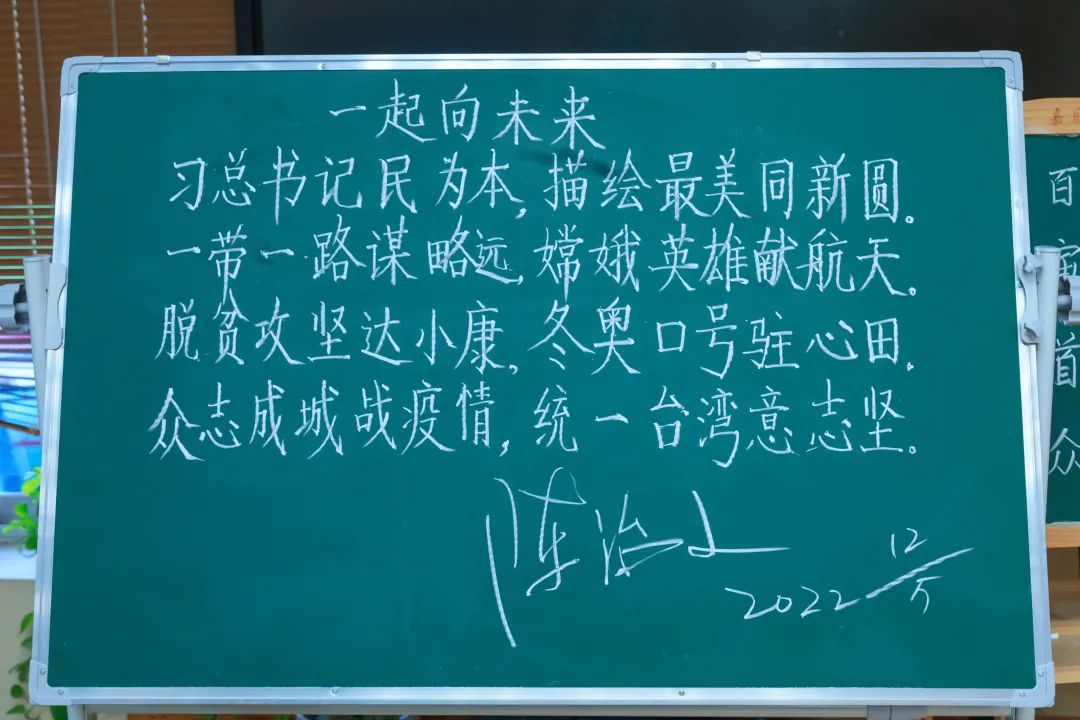 一起向未来
习总书记民为本,描绘最美同新圆.
一带一路谋略远,嫦娥英雄献航天.
脱贫攻坚达小康,冬奥口号驻心田.
众志成城战疫情,统一台湾意志坚.
陈治
2022 12/5
百
首
众